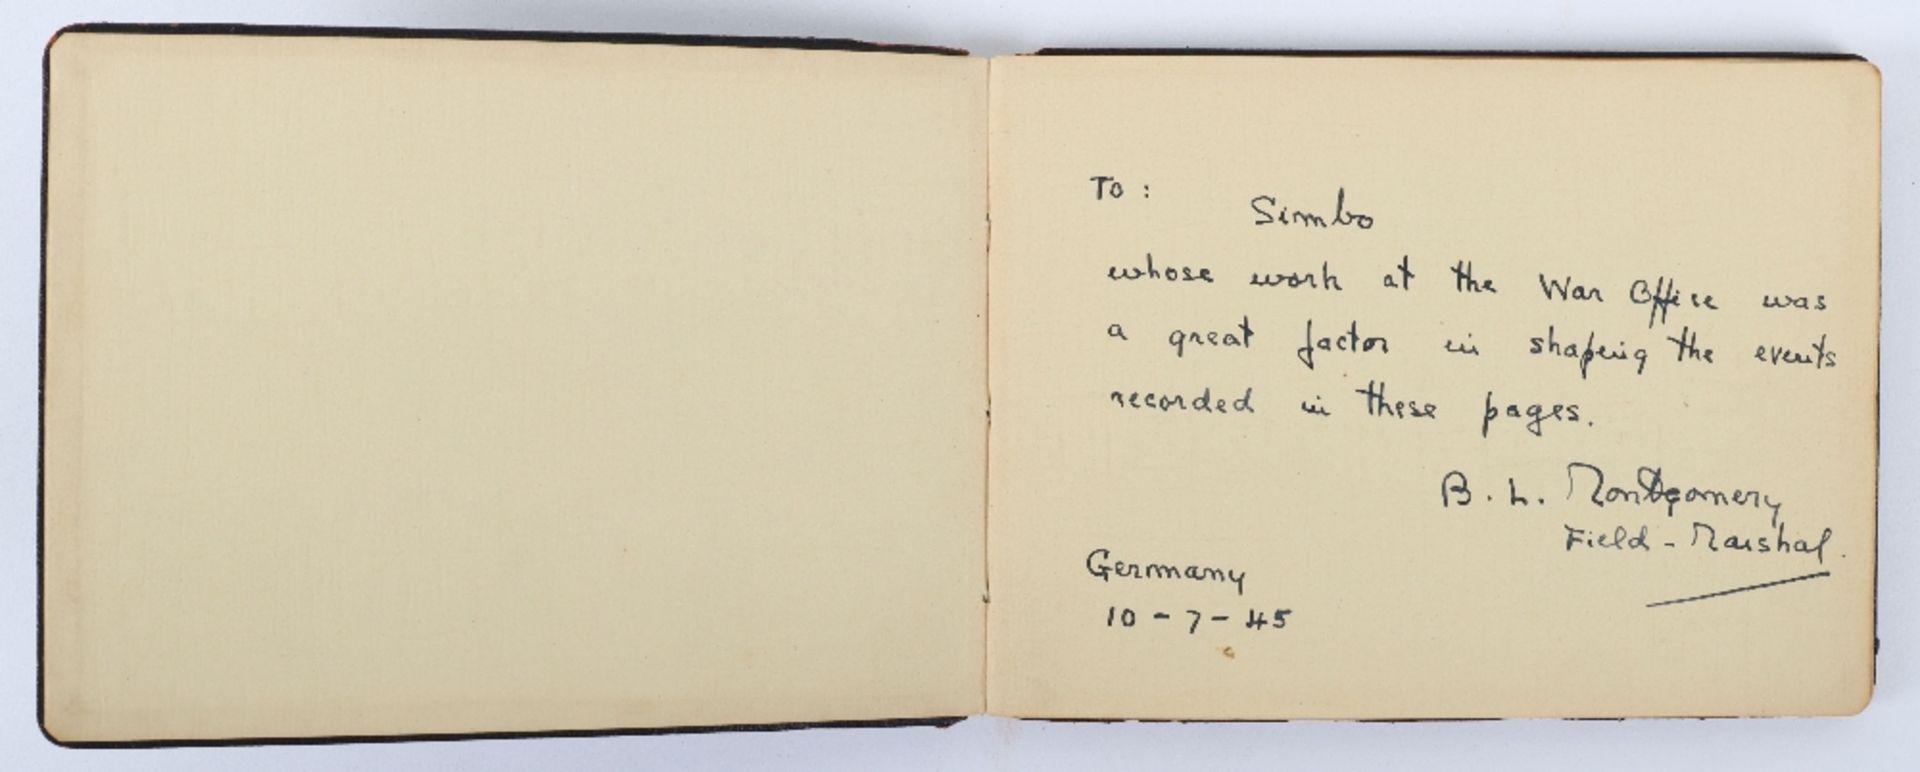 To :
Simbo
whose work at the War Office was
a great factor in shaping the events
recorded in these pages.
B. L. Montgomery
Field - Marshal.
Germany
10 - 7 - 45